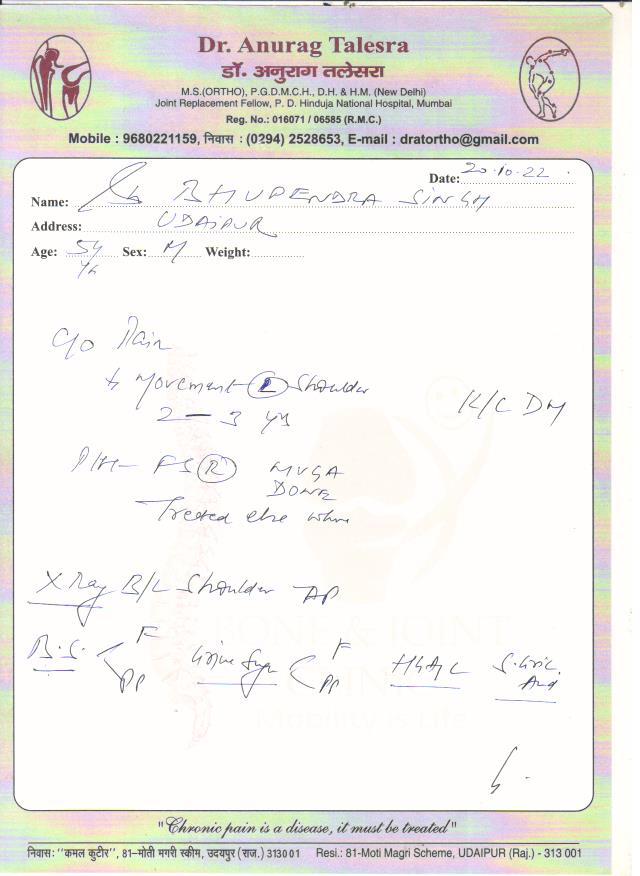 Dr. Anurag Talesra
डॉ. अनुराग तलेसरा
M.S.(ORTHO), P.G.D.M.C.H., D.H. & H.M. (New Delhi)
Joint Replacement Fellow, P. D. Hinduja National Hospital, Mumbai
Reg. No.: 016071 / 06585 (R.M.C.)
Mobile : 9680221159, निवास : (0294) 2528653, E-mail : dratortho@gmail.com
Date: 20.10.22
Name: Sh BHUPENDRA SINGH
Address: UDAIPUR
Age: 54 Sex: M Weight:
Yr
C/o Pain
Movement L Shoulder
K/C DM
2 — 3 yrs
P/H- FS R MUGA
DONE
Treated else where
X Ray B/L Shoulder AP
B.S. F PP Urine Sugar F PP HbA1c S. Uric Acid
BONE & JOINT
Mobility is Life
"Chronic pain is a disease, it must be treated"
निवास: "कमल कुटीर", 81-मोती मगरी स्कीम, उदयपुर (राज.) 313001 Resi.: 81-Moti Magri Scheme, UDAIPUR (Raj.) - 313 001